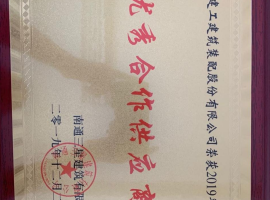 建工建筑装配股份有限公司荣获2019年
优秀合作供应商
南通三星建筑有限
二〇一九年十二月